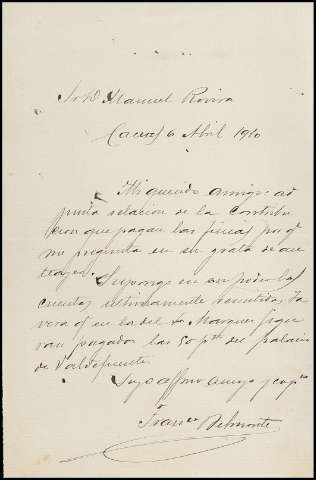 Sr D Manuel Rovira
Caceres 6 Abril 1910
Mi querido amigo: ad
junta relacion de la Contribu
cion que pagan las fincas por q
me pregunta en su grata de an
teayer.
Supongo en su poder las
cuentas ultimamente remitidas, ya
vera q en la del Sr Marques sigue
van pagadas las 50 pts del palacio
de Valdefuentes.
Suyo affmo amigo y cap
Franco Belmonte